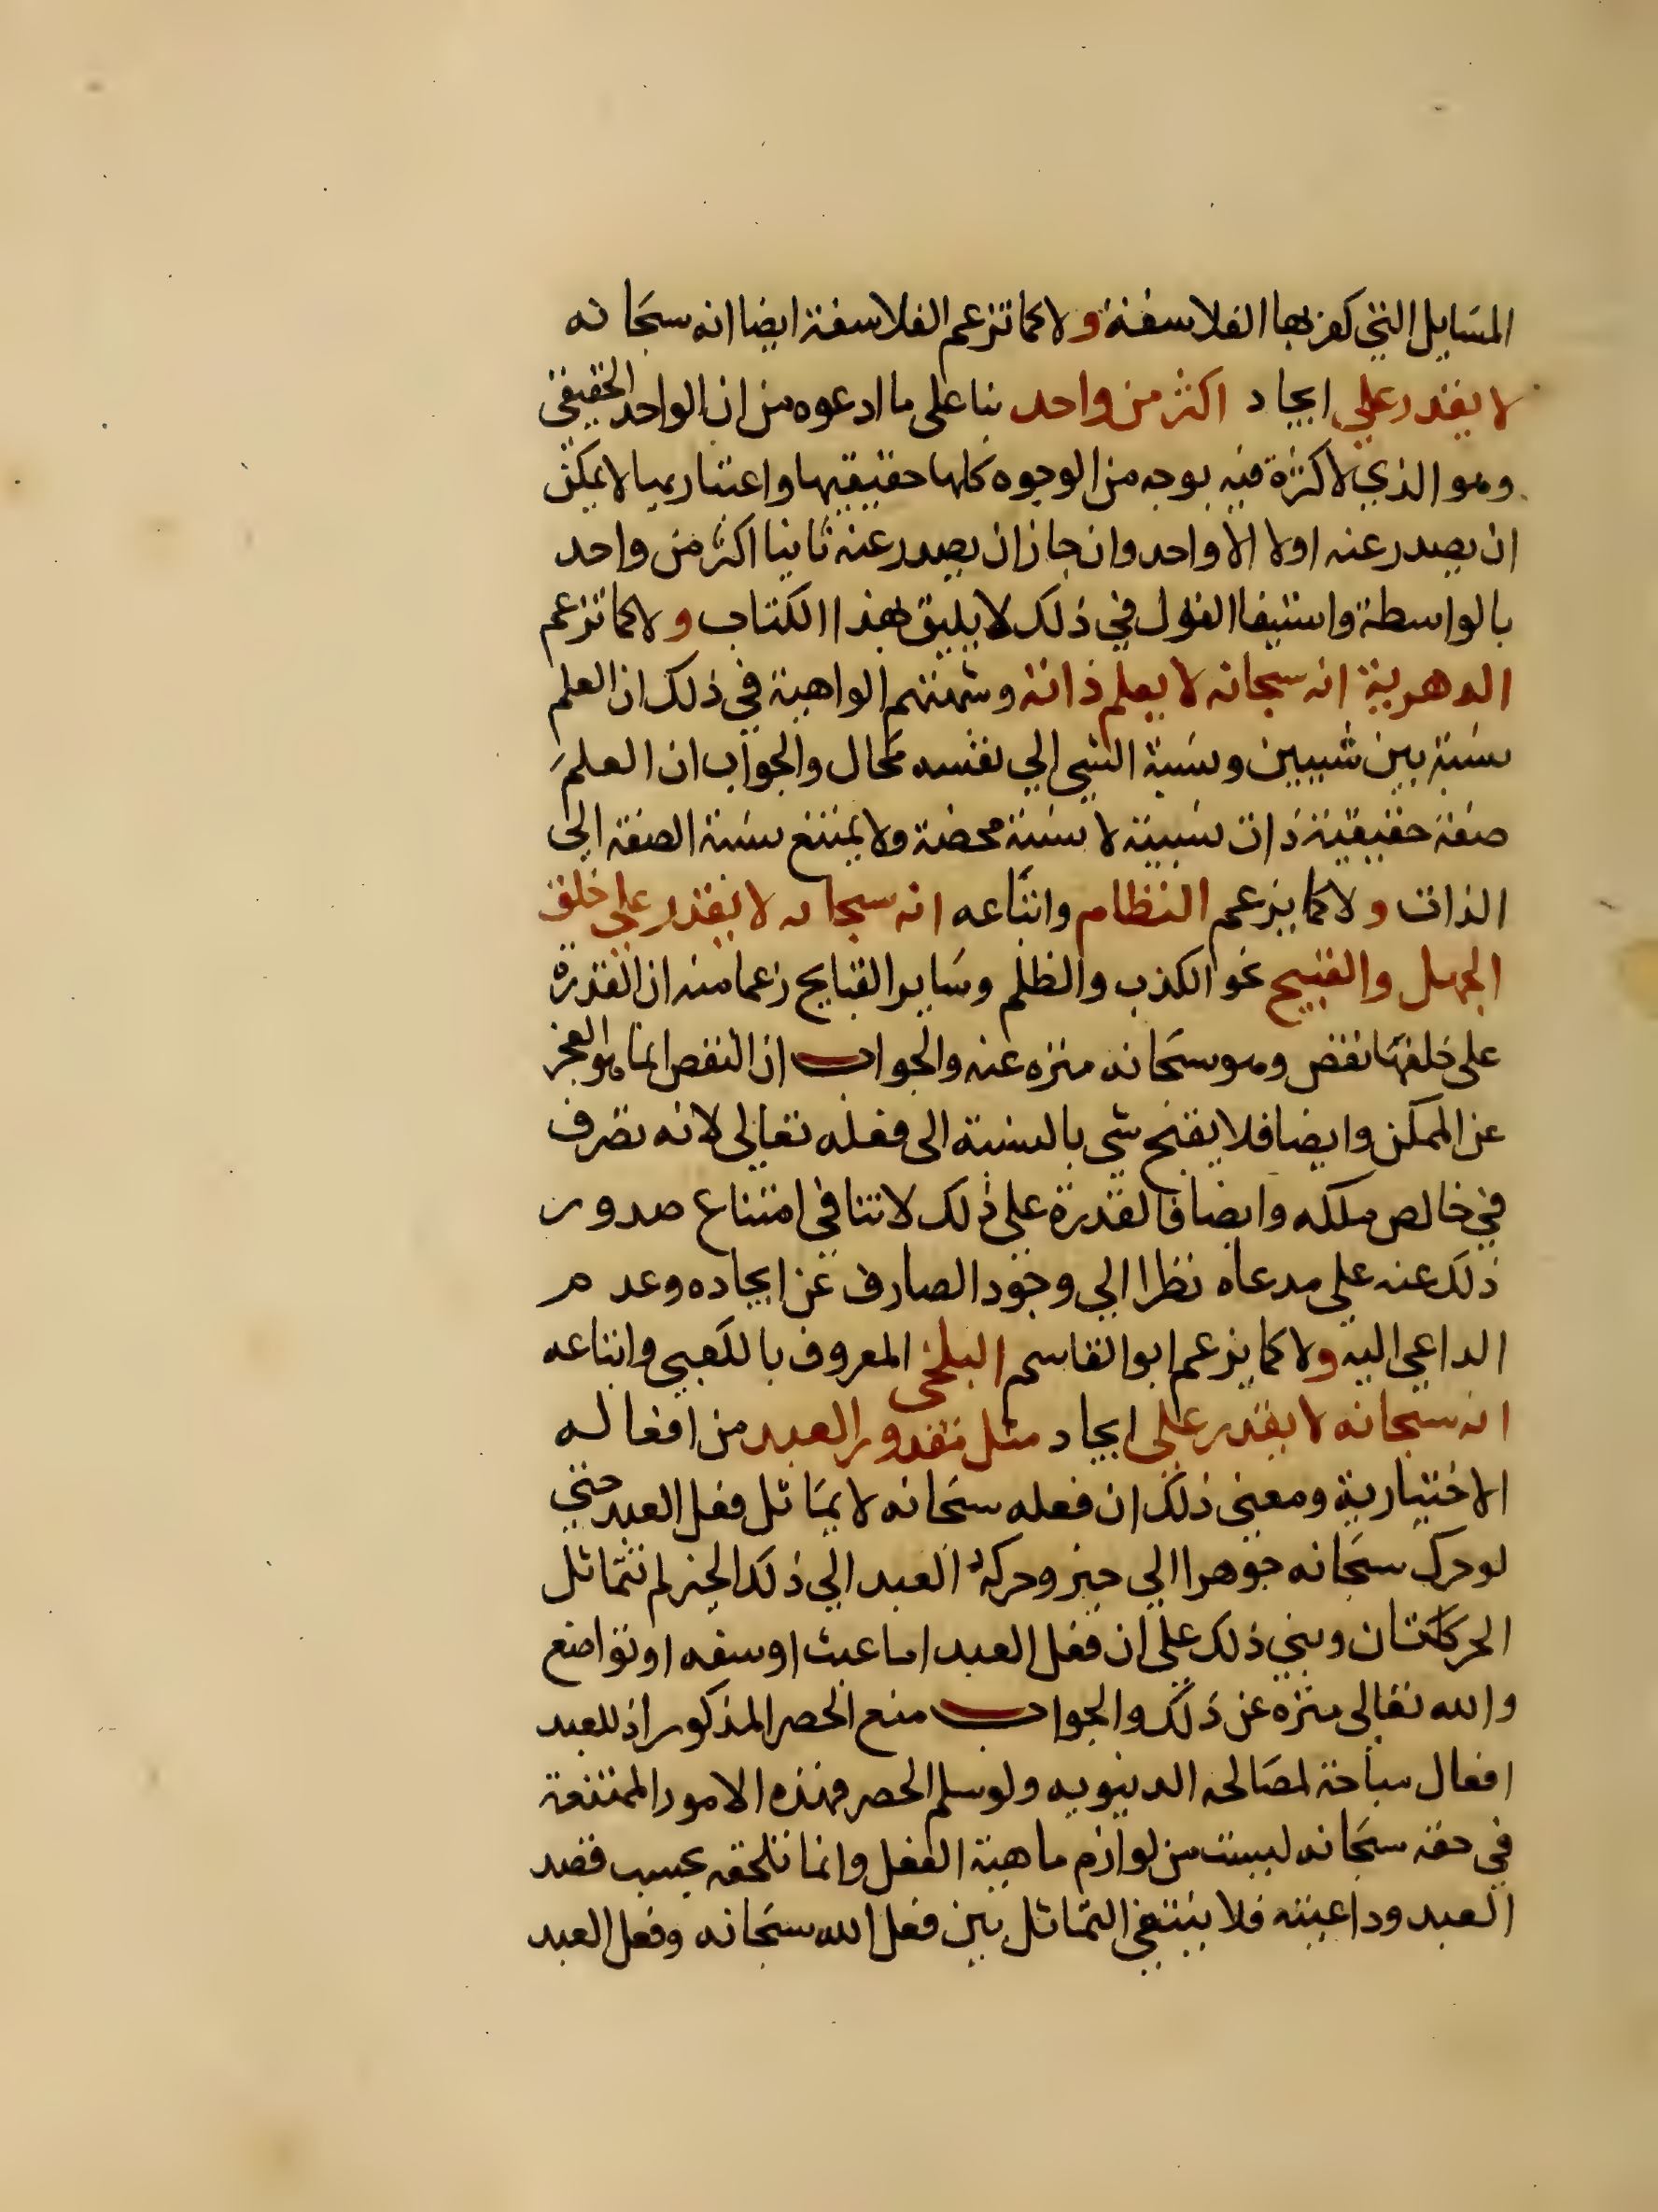 المسايل التي كفر بها الفلاسفة ولا كما تزعم الفلاسفة ايضا انه سبحانه
لا يقدر علي ايجاد اكثر من واحد بنا على ما ادعوه من ان الواحد الحقيقي
وهو الذي لا كثرة فيه بوجه من الوجوه كلها حقيقيها واعتباريها لا يمكن
ان يصدر عنه اولا الا واحد وان جاز ان يصدر عنه ثانيا اكثر من واحد
بالواسطة واستيفا القول في ذلك لا يليق بهذا الكتاب ولا كما تزعم
الدهرية انه سبحانه لا يعلم ذاته وشبهتهم الواهية في ذلك ان العلم
نسبة بين شييين ونسبة الشي الي نفسه محال والجواب ان العلم
صفة حقيقية ذات نسبية لا نسبة محضة ولا يمتنع نسبة الصفة الي
الذات ولا كما يزعم النظام واتباعه انه سبحانه لا يقدر علي خلق
الجهل والقبيح نحو الكذب والظلم وساير القبايح زعما منه ان القدرة
على خلقها نقص وهو سبحانه منزه عنه والجواب ان النقص انما هو العجز
عن الممكن وايضا فلا يقبح شي بالنسبة الى فعله تعالى لانه تصرف
في خالص ملكه وايضا فالقدرة علي ذلك لا تنافي امتناع صدور
ذلك عنه علي مدعاه نظرا الي وجود الصارف عن ايجاده وعدم
الداعي اليه ولا كما يزعم ابو القاسم البلخي المعروف بالكعبي واتباعه
انه سبحانه لا يقدر علي ايجاد مثل مقدور العبد من افعاله
الاختيارية ومعني ذلك ان فعله سبحانه لا يماثل فعل العبد حتي
لو حرك سبحانه جوهرا الي حيز وحركه العبد الي ذلك الحيز لم تتماثل
الحركتان وبني ذلك علي ان فعل العبد اما عبث او سفه او تواضع
والله تعالى منزه عن ذلك والجواب منع الحصر المذكور اذ للعبد
افعال مباحة لمصالحه الدينويه ولو سلم الحصر فهذه الامور الممتنعة
في حقه سبحانه ليست من لوازم ماهية الفعل وانما تلحقه بحسب قصد
العبد وداعيته فلا ينتفي التماثل بين فعل الله سبحانه وفعل العبد